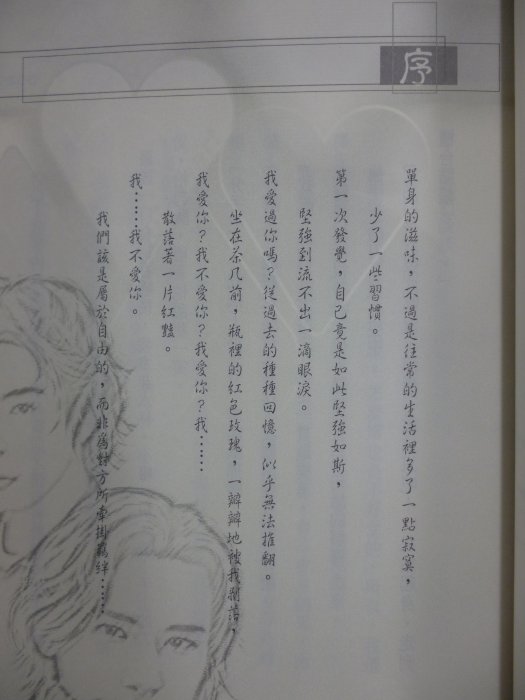 序
單身的滋味，不過是往常的生活裡多了一點寂寞，
少了一些習慣。
第一次發覺，自己竟是如此堅強如斯，
堅強到流不出一滴眼淚。
我愛過你嗎？從過去的種種回憶，似乎無法推翻。
坐在茶几前，瓶裡的紅色玫瑰，一瓣瓣地被我剝落，
我愛你？我不愛你？我愛你？我……
散落著一片紅豔。
我……我不愛你。
我們該是屬於自由的，而非為對方所牽掛羈絆……